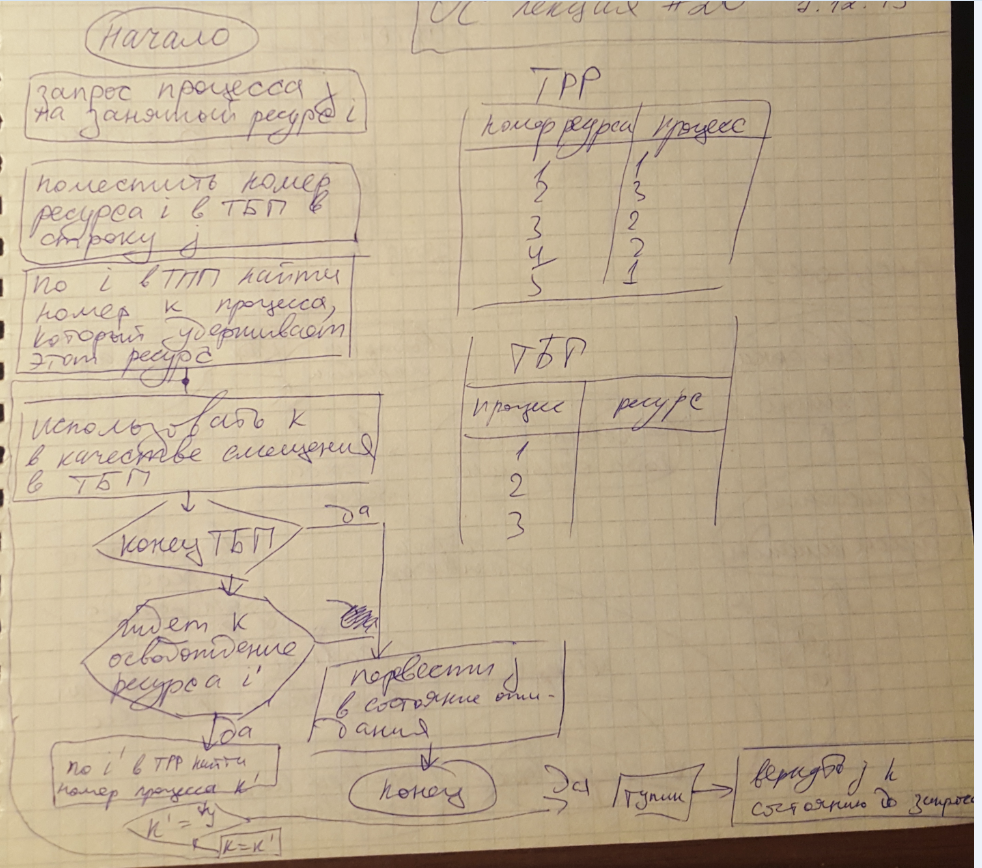 ОС лекция #20
Начало
запрос процесса j
на занятый ресурс i
поместить номер
ресурса i в ТБП в
строку j
по i в ТПП найти
номер k процесса,
который удерживает
этот ресурс
использовать k
в качестве смещения
в ТБП
конец ТБП
да
ждет k
освобождение
ресурса i'
да
по i' в ТРР найти
номер процесса k'
k' = j
k=k'
перевести j
в состояние ожи-
дания
Конец
да
тупик
вернуть j к
состоянию до запроса
ТРР
номер ресурса процесс
1 1
2 3
3 2
4 2
5 1
ТБП
процес ресурс
1
2
3